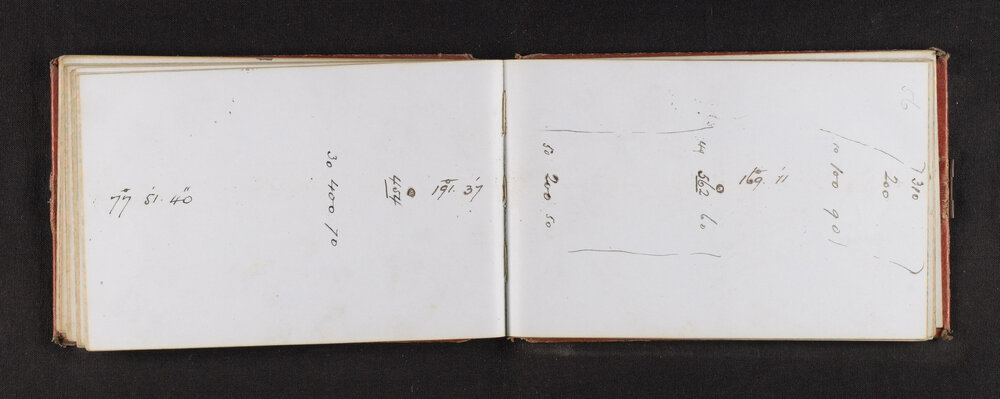 77° 51' 40"
30 400 70
454
191° 37'
50 200 50
44 562 60
169° 11'
10 100 90
310
200
56